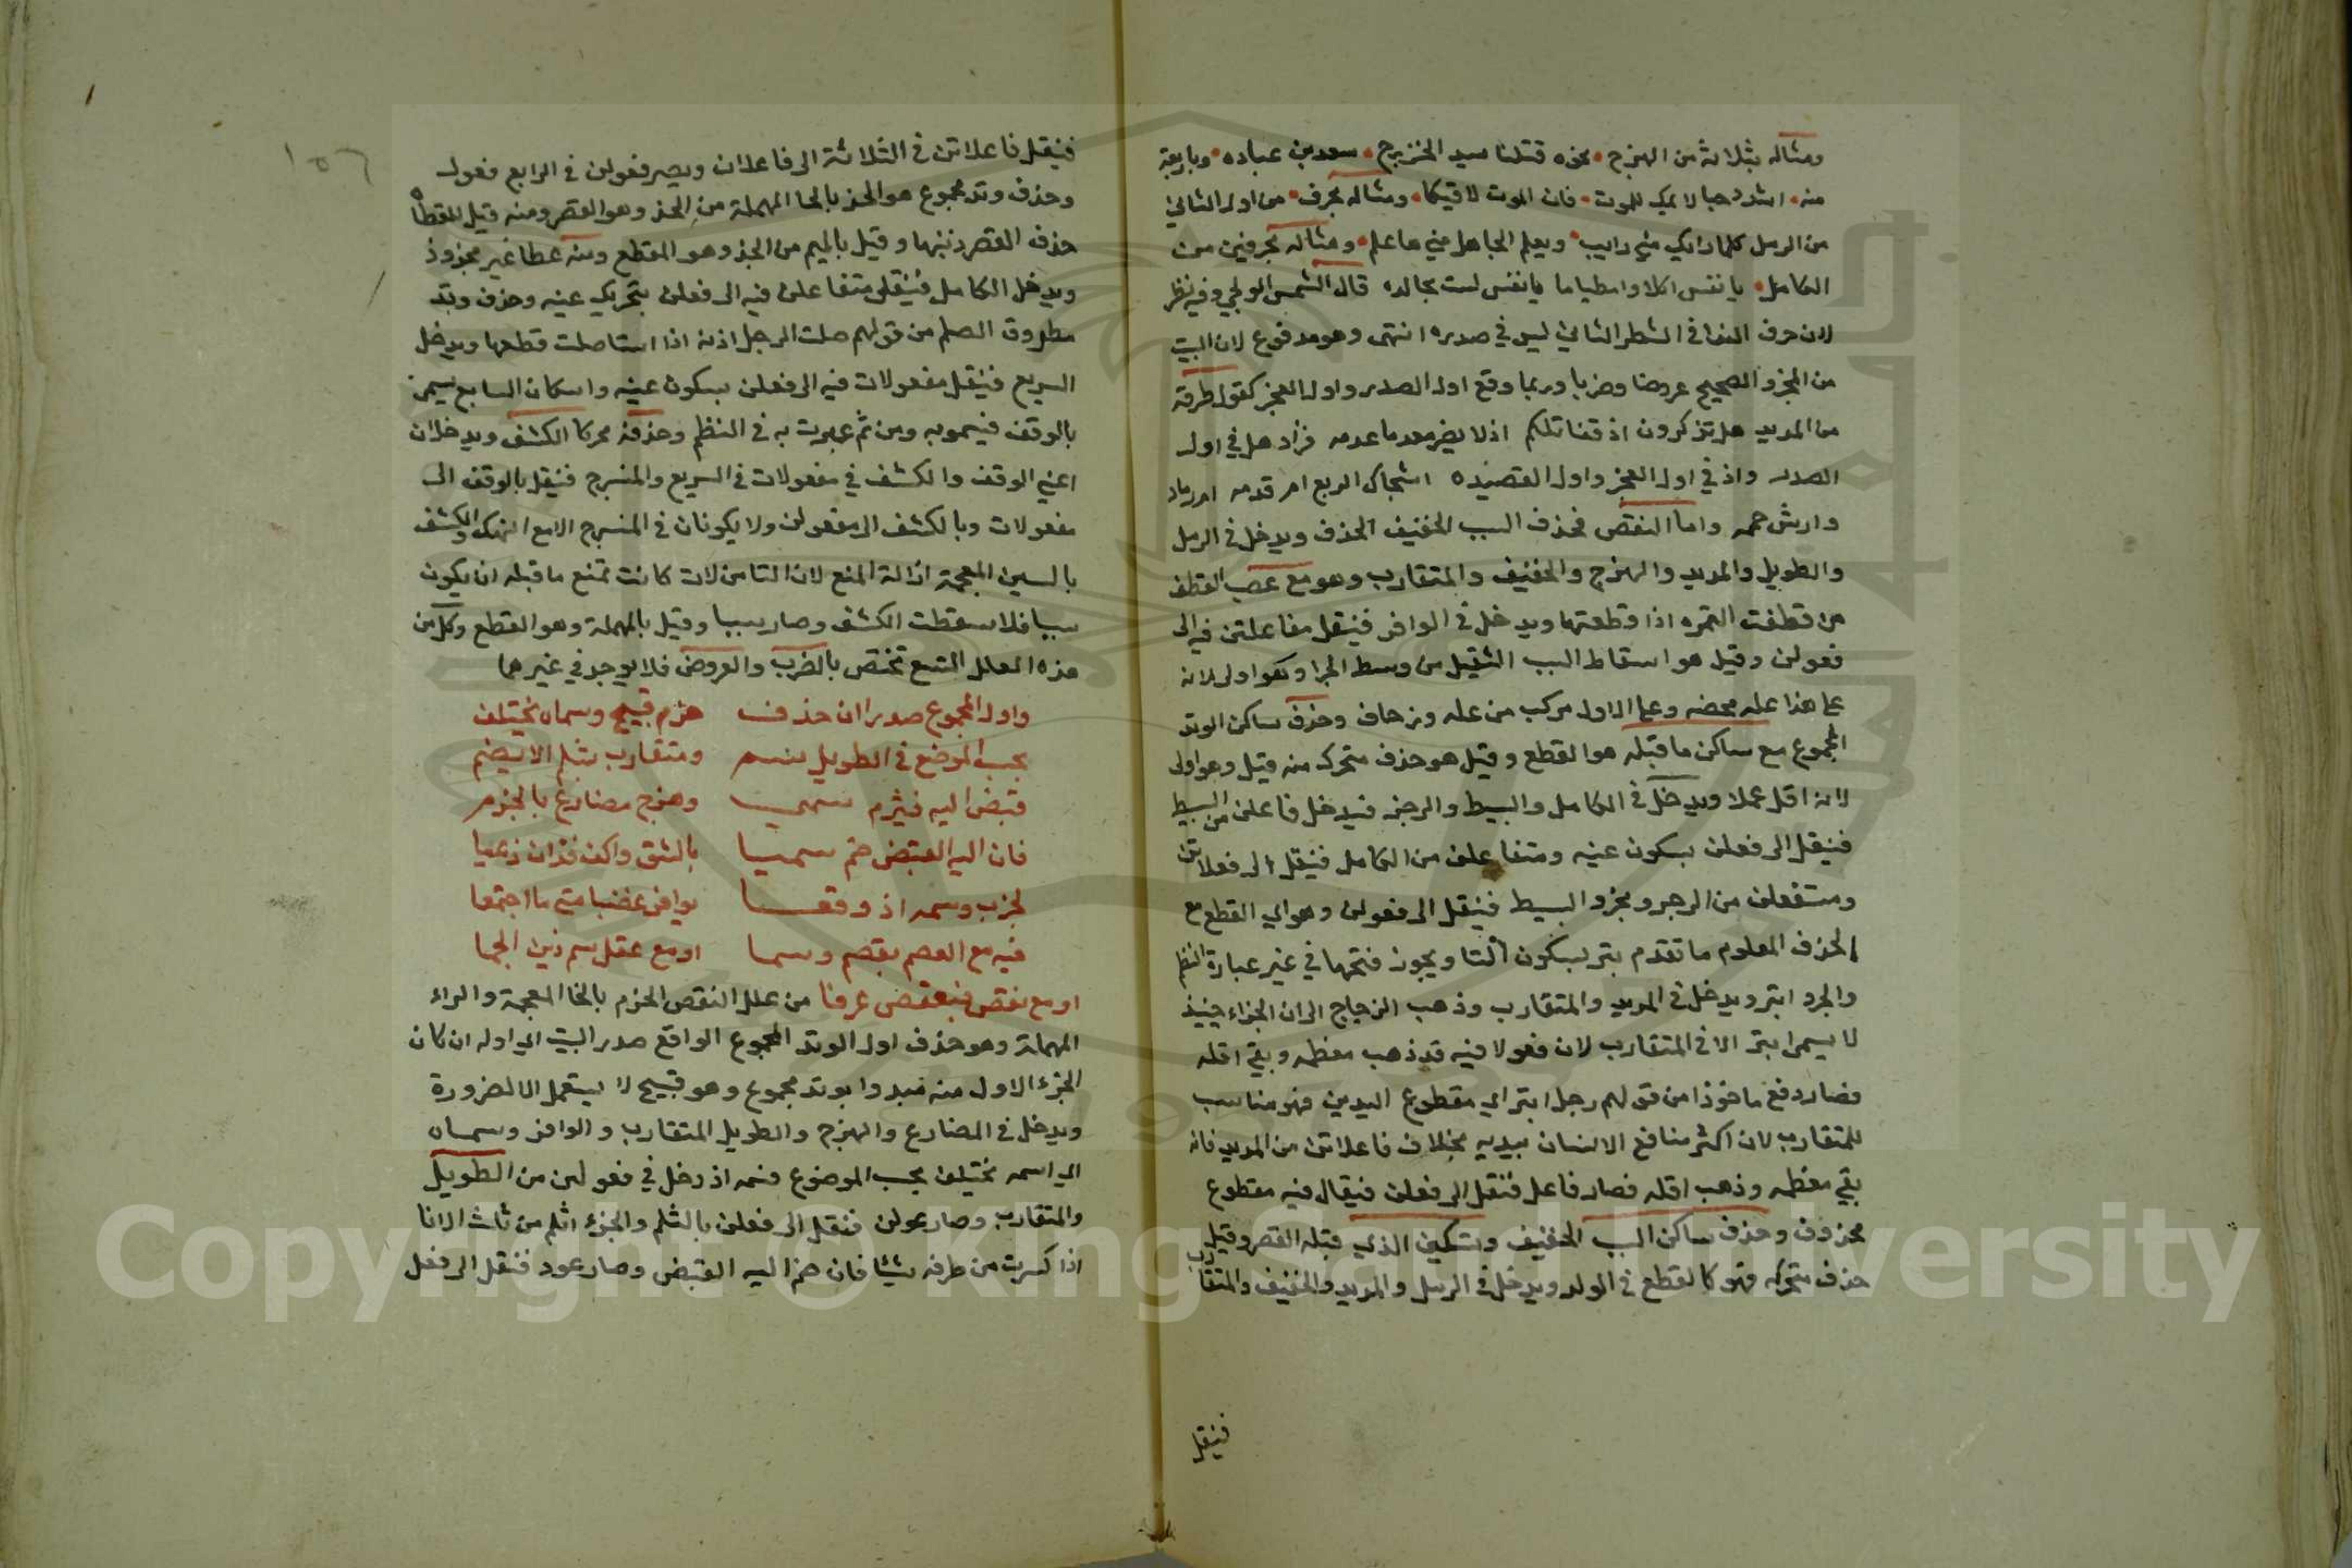 ومثاله بثلاثة من الهزج نحوه قتلنا سيد الخزرج سعد بن عباده وباربعة
منه اشدد حيا لايمك للموت فان الموت لاقيكا ومثاله بحرف من اول الثاني
من الرمل كلما رابك مني رايب ويعلم الجاهل مني ما علم ومثاله بحرفين من
الكامل يا نفس اكلا واضطياما يا نفس لست بخالده قال الشمس الولجي وفيه نظر
لان حرف الندا في الشطر الثاني ليس في صدره انتهى وهو مدفوع لان البيت
من المجزو الصحيح عروضا وضربا وربما وقع اول الصدر واول العجز كقول طرفة
من المديد هل تذكرون اذ قنا تلكم اذ لا يضر معدما عدمه فزاد هل في اول
الصدر واذ في اول العجز واول القصيده اشجاك الربع ام قدمه ام رماد
دارش حممه واما النقص فحذف السبب الخفيف الحذف ويدخل في الرمل
والطويل والمديد والهزج والخفيف والمتقارب وهو مع عصب القطف
من قطفت الثمره اذا قطعتها ويدخل في الوافر فينقل مفاعلتن فيه الى
فعولن وقيل هو اسقاط السبب الثقيل من وسط الجزا وهو اولى لانه
على هذا عله محضه وعلى الاول مركب من عله وزحاف وحذف ساكن الوتد
المجموع مع ساكن ما قبله هو القطع وقيل هو حذف متحرك منه قيل وهو اولى
لانه اقل عملا ويدخل في الكامل والبسيط والرجز فيدخل فاعلن من البسيط
فينقل الى فعلن بسكون عينه ومتفاعلن من الكامل فينقل الى فعلاتن
ومستفعلن من الرجز ومجزو البسيط فينقل الى فعولن وهو اي القطع مع
الحذف المعلوم ما تقدم بتر بسكون التا ويجوز فتحها في غير عبارة النظم
والجزء ابتر ويدخل في المديد والمتقارب وذهب الزجاج الى ان الجزاء حينيذ
لا يسمى ابتر الا في المتقارب لان فعولا فيه قد ذهب معظمه وبقي اقله
فصار دفع ماخوذا من قولهم رجل ابتر اي مقطوع اليدين فهو مناسب
للمتقارب لان اكثر منافع الانسان بيديه بخلاف فاعلاتن من المديد فانه
بقي معظمه وذهب اقله فصار فاعل فنقل الى فعلن فيقال فيه مقطوع
محذوف وحذف ساكن السبب الخفيف وتسكين الذي قبله القصر وقيل
حذف متحركه فهو كالقطع في الولد ويدخل في الرمل والمديد والخفيف والمتقارب
فينقل
١٥٦
فينقل فاعلاتن في الثلاثة الى فاعلان ويصير فعولن في الرابع فعول
وحذف وتد مجموع هو الحذ بالحا المهملة من الحذ وهو القصر ومنه قيل للقطاه
حذف القصر ذنبها وقيل بالجيم من الجذ وهو المقطع ومنه عطا غير مجذوذ
ويدخل الكامل فينقل متفاعلن فيه الى فعلن بتحريك عينه وحذف وتد
مطروق الصلم من قولهم صلت الرجل اذنه اذا استاصلت قطعها ويدخل
السريع فينقل مفعولات فيه الى فعلن بسكون عينه واسكان السابع يسمى
بالوقف فيسمونه ومن ثم عبرت به في النظم وحذفه محركا الكشف ويدخلان
اعني الوقف والكشف في مفعولات في السريع والمنسرح فينقل بالوقف الى
مفعولات وبالكشف الى مفعولن ولا يكونان في المنسرح الا مع النهك والكشف
بالسين المعجمة ازالة المنع لان التا من لات كانت تمنع ما قبله ان يكون
سببا فلا سقطت الكشف وصار سببا وقيل بالمهملة وهو القطع وكل من
هذه العلل التسع تختص بالضرب والعروض فلا يوجد في غيرهما
واول المجموع صدرا ان حذفت خزم قبيح وسماه تختلف
بحسب الموضع في الطويل ومتقارب بثلم
قبض اليه فثرم سمي وهزج مضارع بالخزم
فان اليه القبض ضم سميا بالشتر واكف فذان ذعيا
لخرب وسمه اذ وقعا بوافر عضبا متى ما اجتمعا
فيه مع العصم بقصم وسما او مع عقل سم ذين الجما
او مع نقص فبعقص عرفا من علل النقص الخزم بالخا المعجمة والراء
المهملة وهو حذف اول الوتد المجموع الواقع صدر البيت اي اوله ان كان
الجزء الاول منه مبدوا بوتد مجموع وهو قبيح لا يستعمل الا لضرورة
ويدخل في المضارع والهزج والطويل المتقارب والوافر وسماه
اي اسمه تختلف بحسب الموضوع فسمه اذ دخل في فعولن من الطويل
والمتقارب وصار عولن فنقل الى فعلن بالثلم والجزء اثلم من ثلث الانا
اذا كسرت من طرفه شيئا فان ضم اليه القبض وصار عول فنقل الى فعل
Copyright © King Saud University